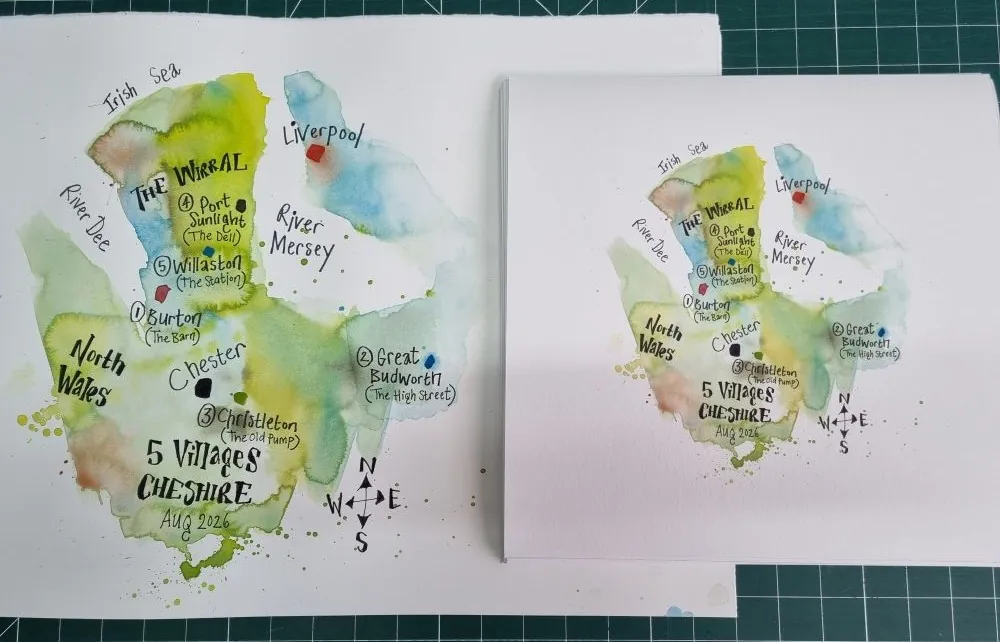 Irish Sea
Liverpool
THE WIRRAL
River Dee
④ Port
Sunlight
(The Dell)
River
Mersey
⑤ Willaston
(The Station)
① Burton
(The Barn)
North
Wales
Chester
② Great
Budworth
(The High Street)
③ Christleton
(The Old Pump)
5 Villages
CHESHIRE
Aug 2026
N
W E
S
Irish Sea
Liverpool
THE WIRRAL
River Dee
④ Port
Sunlight
(The Dell)
River
Mersey
⑤ Willaston
(The Station)
① Burton
(The Barn)
North
Wales
Chester
② Great
Budworth
(The High Street)
③ Christleton
(The Old Pump)
5 Villages
CHESHIRE
Aug 2026
N
W E
S